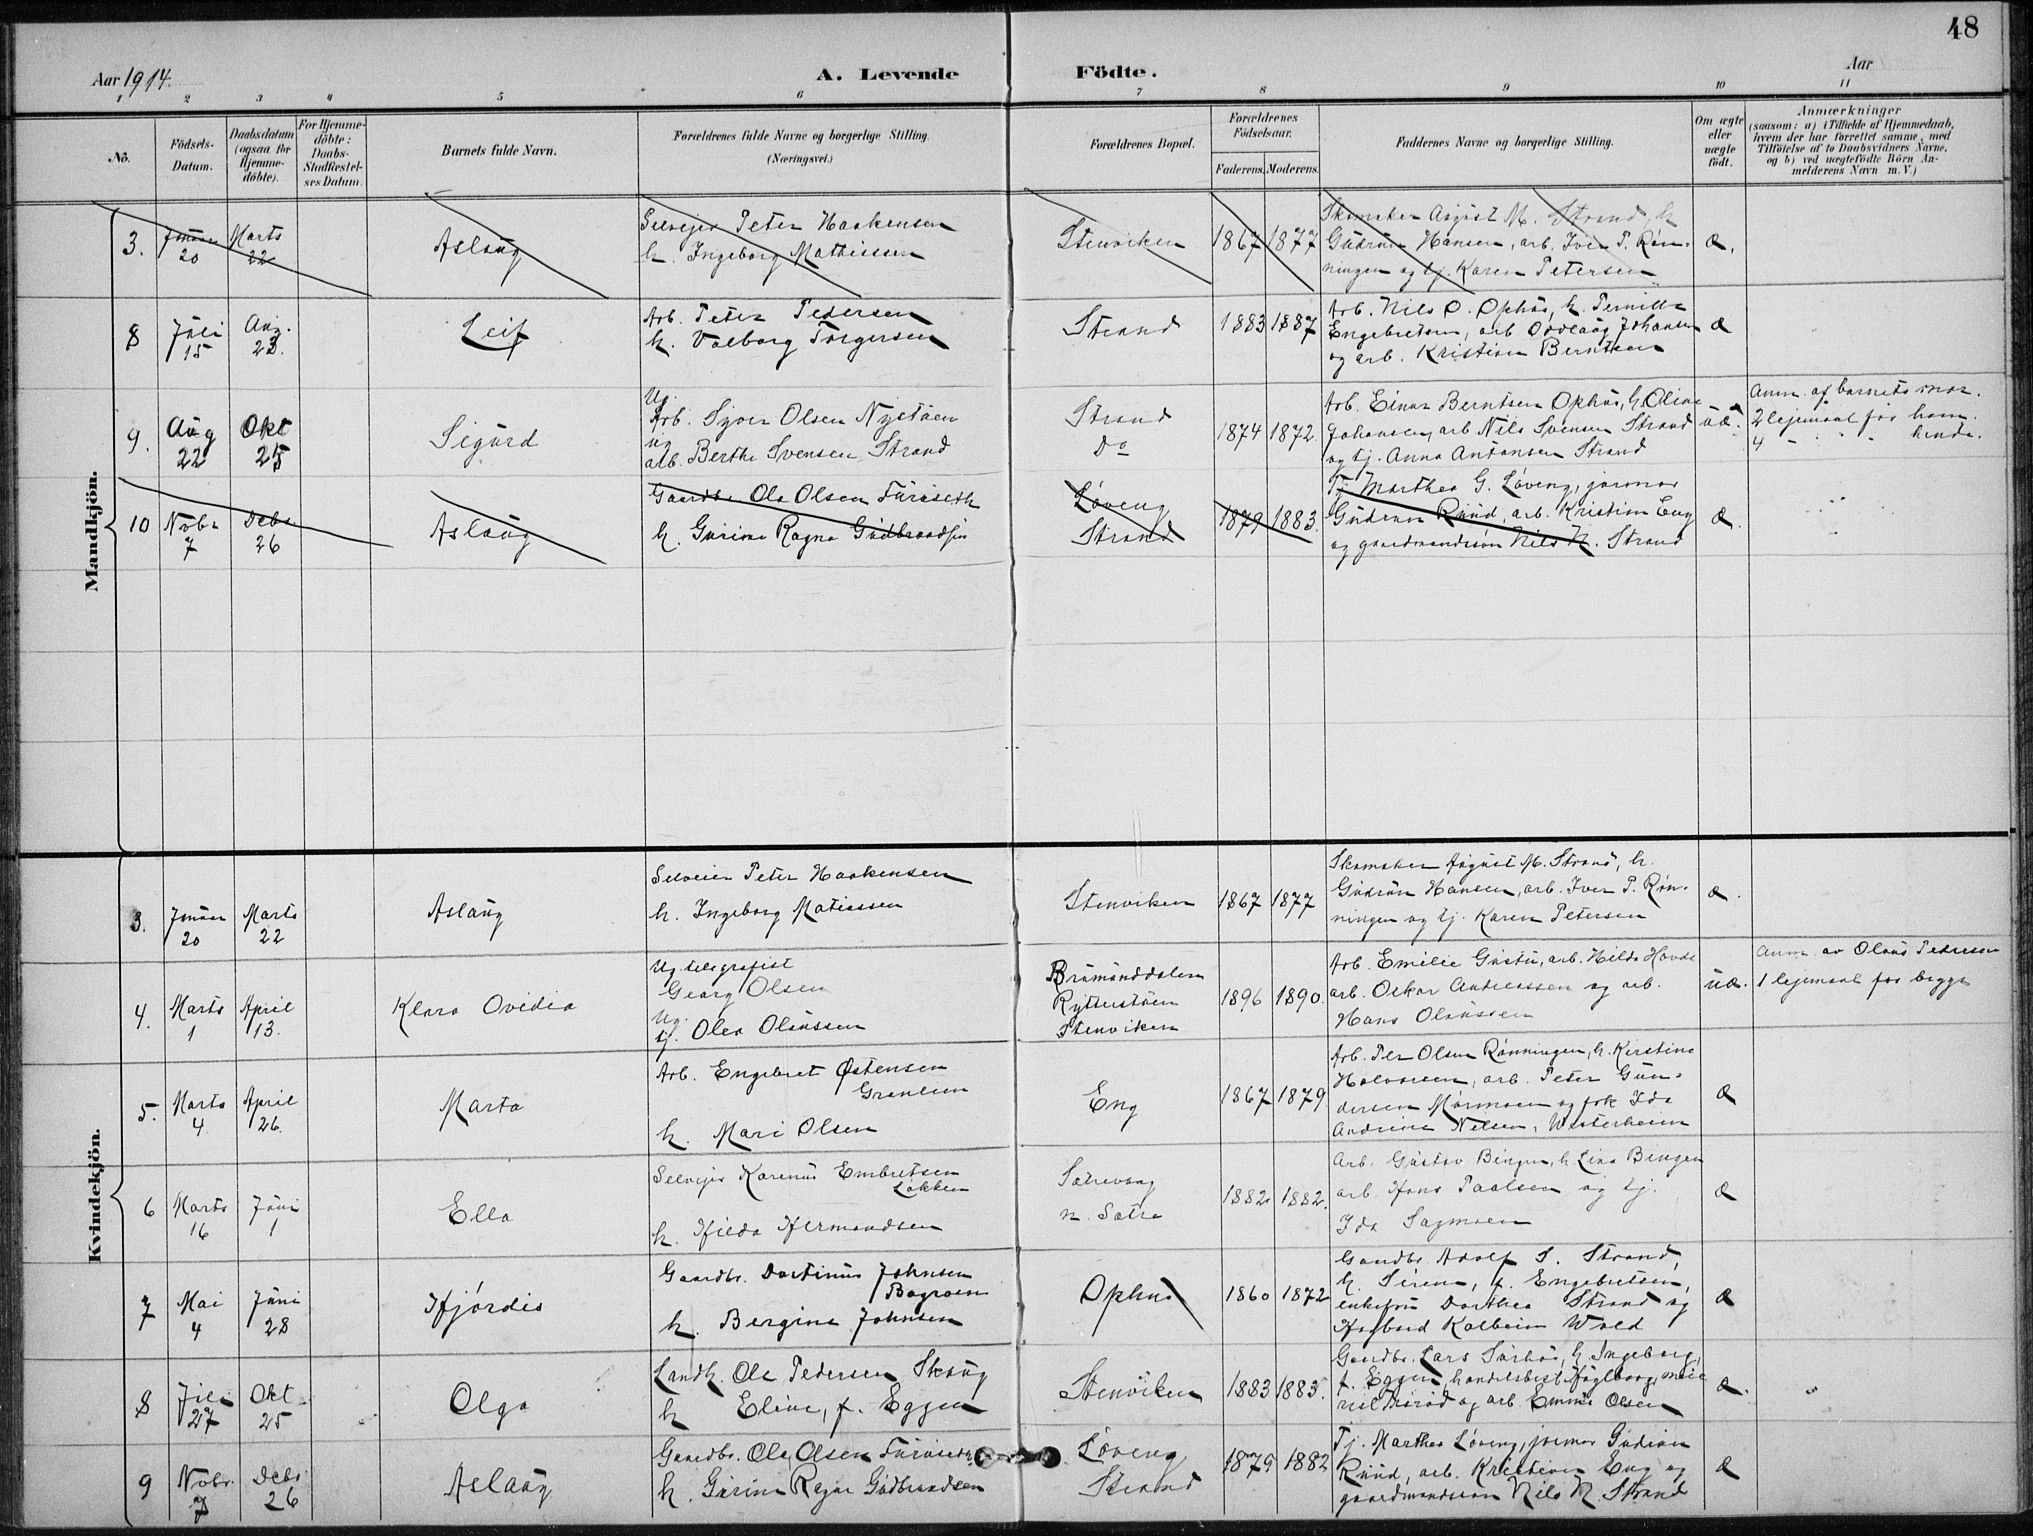 48
Aar 1914.
A. Levende Födte.
Aar
1 2 3 4 5 6 7 8 9 10 11
No.
Födsels-
Datum.
Daabsdatum
(ogsaa for
Hjemme-
döbte).
For Hjemme-
döbte:
Daabs-
Stadfæstel-
ses Datum.
Barnets fulde Navn.
Forældrenes fulde Navne og borgerlige Stilling.
(Næringsvei.)
Forældrenes Bopæl.
Forældrenes
Födselsaar.
Faderens. Moderens.
Faddernes Navne og borgerlige Stilling.
Om ægte
eller
uægte
födt.
Anmærkninger
(saasom: a) i Tilfælde af Hjemmedaab,
hvem der har forrettet samme, med
Tilföielse af to Daabsvidners Navne,
og b) ved uægtefödte Börn An-
melderens Navn m. V.)
Mandkjön.
3. Januar 20 Marts 22 Aslaug
Selvejer Peter Haakensen
h. Ingeborg Mathissen
Stenviken 1867 1877
Skomaker August M. Strand, h
Gudrun Hansen, arb. Iver P. Røn-
ningen og tj. Karen Petersen
æ.
8 Juli 15 Aug. 23. Leif
Arb. Peter Pedersen
h. Valborg Torgersen
Strand 1883 1887
Arb. Nils O. Ophus, h. Pernille
Engebretsen, arb Oddlaug Johansen
og arb. Kristian Berntsen
æ
9. Aug 22 Okt 25 Sigurd
Ug.
Arb. Syver Olsen Nystuen
ug
arb. Berthe Svensen Strand
Strand
Do
1874 1872.
Arb. Einar Berntsen Ophus, h. Oline
Johansen, arb Nils Svensen Strand
og tj. Anna Antonsen Strand
uæ.
Anm. af barnets mor.
2 lejemaal for ham.
4 " " " hende.
10 Nobr 7 Debr 26 Aslaug
Gaardbr Ole Olsen Furuseth
h. Gurine Ragna Gudbrandsen
Løveng
Strand
1879 1883.
Tj Marthea G. Løveng, jormor
Gudrun Ruud, arb. Kristian Eng
og gaardmandssøn Nils N. Strand
æ.
Kvindekjön.
3. Januar 20 Marts 22 Aslaug
Selveier Peter Haakensen
h. Ingeborg Matiassen
Stenviken 1867 1877
Skomaker August M. Strand, h.
Gudrun Hansen, arb. Iver P. Røn-
ningen og tj. Karen Petersen
æ.
4. Marts 1 April 13. Klara Ovidia
Ug telegrafist
Georg Olsen
Ug.
tj. Olea Olaussen
Rytterstuen
Stenviken
1896 1890.
Arb. Emilie, arb. Hilda Hovde
arb. Oskar Andreassen og arb.
Hans Olaussen
uæ.
Anm. av Olaus Pedersen
1 lejemaal for begge
5. Marts 4. April 26. Marta
Arb. Engebret Østensen
Granlien
h. Mari Olsen
Eng 1867 1879
Arb. Per Olsen Rønningen, h. Kirstine
Halvorsen, arb. Peter Gun-
dersen Mørmoen og frk Ida
Andrine Nelsen, Westerheim
æ
6 Marts 16 Juni 1 Ella
Selvejer Karenus Embretsen
Løkken
h. Hilda Hermandsen
Sætrevang
n. Sætre
1882 1882.
Arb. Gustav Bingen, h Lina Bingen
arb. Hans Paalsen og tj.
Ida Sagmoen
æ
7 Mai 4 Juni 28 Hjørdis
Gaardbr. Dortinus Johnsen
h. Bergine Johnsen
Ophus 1860 1872
Gaardbr. Adolf S. Strand,
h. Sirene, f. Engebretsen,
enkefru Dorthea Strand og
Hagbard Kolbein Wold
æ
8 Juli 27 Okt 25 Olga
Landh. Ole Pedersen Skaug
h Eline, f. Eggen
Stenviken 1883 1883.
Gaardbr. Lars Surhus, h. Ingeborg,
f. Eggen, handelsbest. Haglborg, meie
og arb. Emma Olsen
æ.
9 Nobr. 7 Debr 26 Aslaug
Gaardbr. Ole Olsen Furuseth
h. Gurine Ragna Gudbrandsen
Løveng
Strand
1879 1882
Tj. Marthea Løveng, jormor Gudrun
Ruud, arb. Kristian Eng og
gaardmandssøn Nils N. Strand
æ